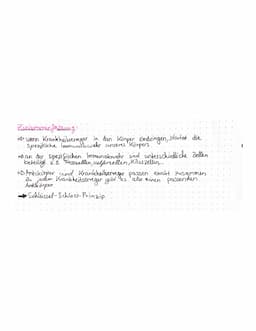 Zusammenfassung:
⇒ wenn Krankheitserreger in den Körper eindringen, startet die
spezifische Immunabwehr unseres Körpers
⇒ an der spezifischen Immunabwehr sind unterschiedliche Zellen
beteiligt z.B. Fresszellen, Helferzellen, Killerzellen...
⇒ Antikörper und Krankheitserreger passen exakt zusammen
zu jedem Krankheitserreger gibt es also einen passenden
Antikörper
→ Schlüssel-Schloss-Prinzip